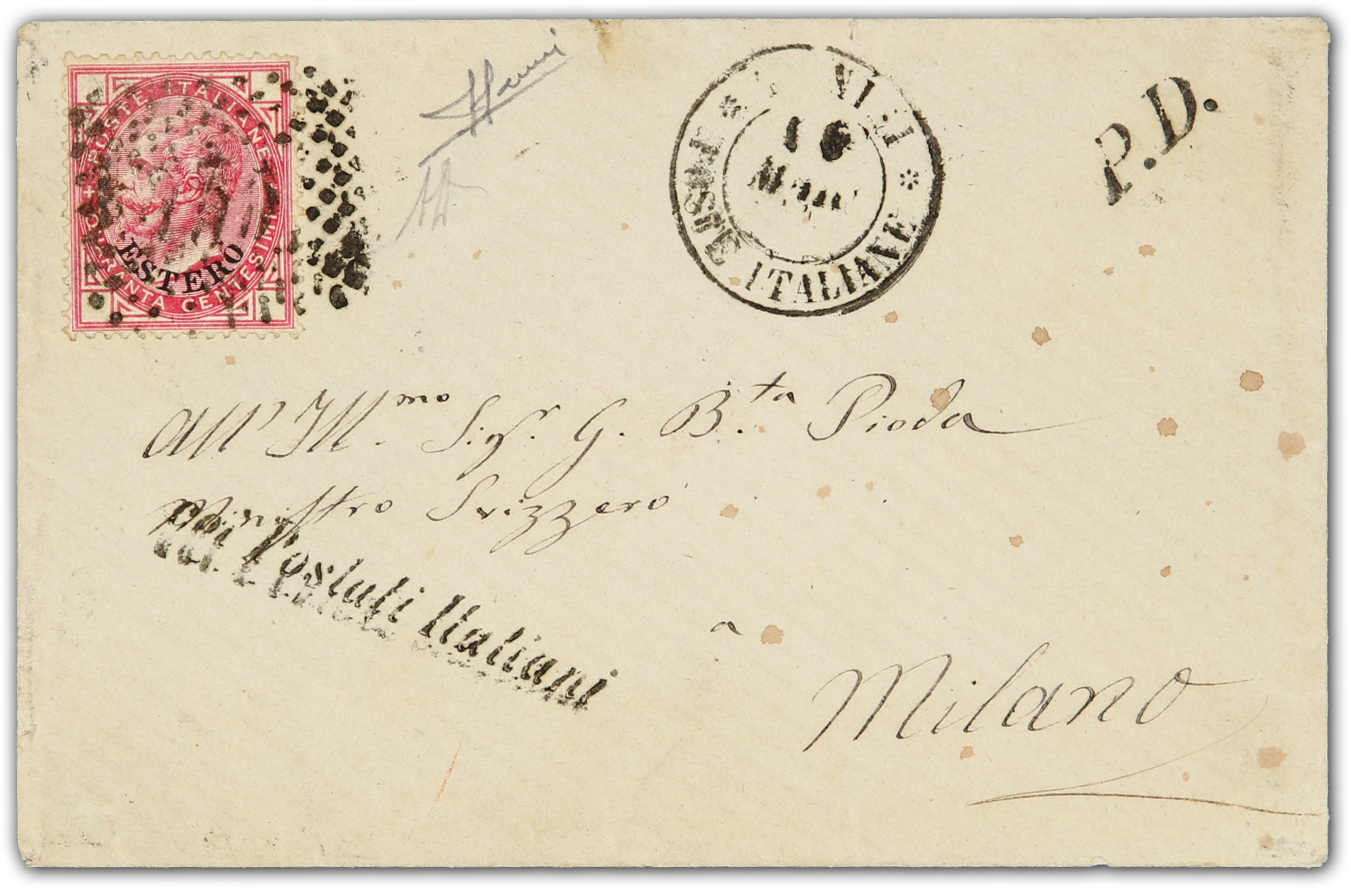 POSTE ITALIANE
QUARANTA CENTESIMI
ESTERO
16
POSTE ITALIANE
P.D.
All' Ill.mo Sigr. G. B.ta Pioda
Ministro Svizzero
Postali Italiani
a
Milano